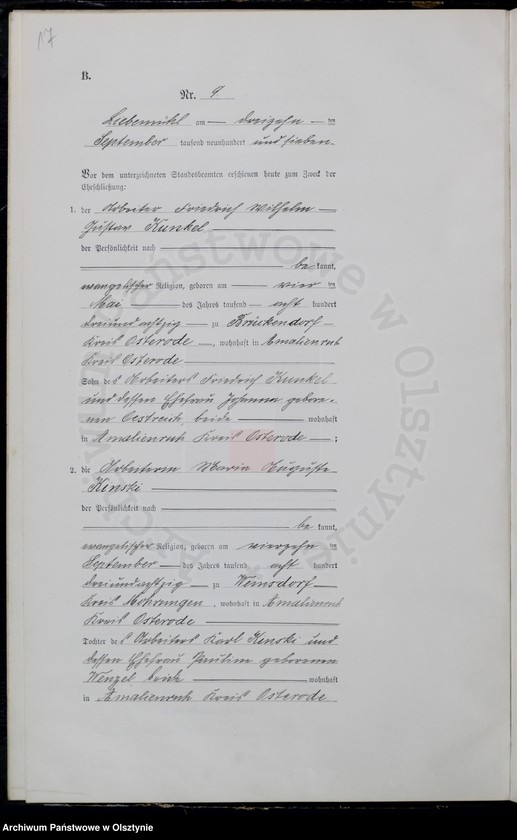 17
B.
Nr. 9
Liebemühl am dreizehn ten
September tausend neunhundert und sieben.
Vor dem unterzeichneten Standesbeamten erschienen heute zum Zweck der
Eheschließung:
1. der Arbeiter Friedrich Wilhelm
Gustav Kunkel
der Persönlichkeit nach
be kannt,
evangelischer Religion, geboren am vier ten
Mai des Jahres tausend acht hundert
dreiundachtzig zu Brückendorf
Kreis Osterode, wohnhaft in Amalienruh
Kreis Osterode
Sohn des Arbeiters Friedrich Kunkel
und dessen Ehefrau Johanna gebore-
nen Oestreich, beide wohnhaft
in Amalienruh Kreis Osterode ;
2. die Arbeiterin Maria Auguste
Kinski
der Persönlichkeit nach
be kannt,
evangelischer Religion, geboren am vierzehn ten
September des Jahres tausend acht hundert
dreiundachtzig zu
Kreis Mohrungen, wohnhaft in Amalienruh
Kreis Osterode
Tochter des Arbeiters Karl Kinski und
dessen Ehefrau Pauline geborenen
Wenzel beide wohnhaft
in Amalienruh Kreis Osterode
Archiwum Państwowe w Olsztynie
Archiwum Państwowe w Olsztynie